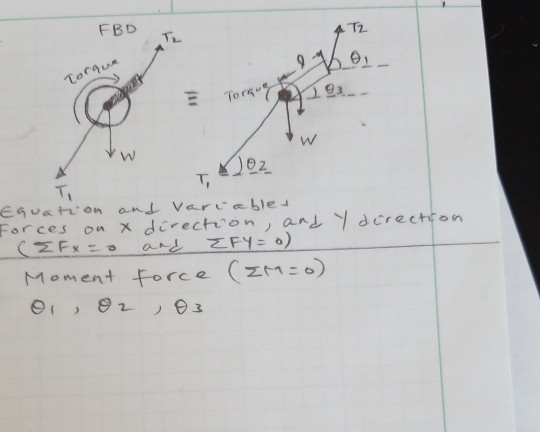 FBD
T2
Torque
W
T1
≡
T2
θ1
l
Torque
θ3
W
θ2
T1
Equation and variables
Forces on x direction, and Y direction
(ΣFx=0 and ΣFY=0)
Moment force (ΣM=0)
θ1, θ2, θ3